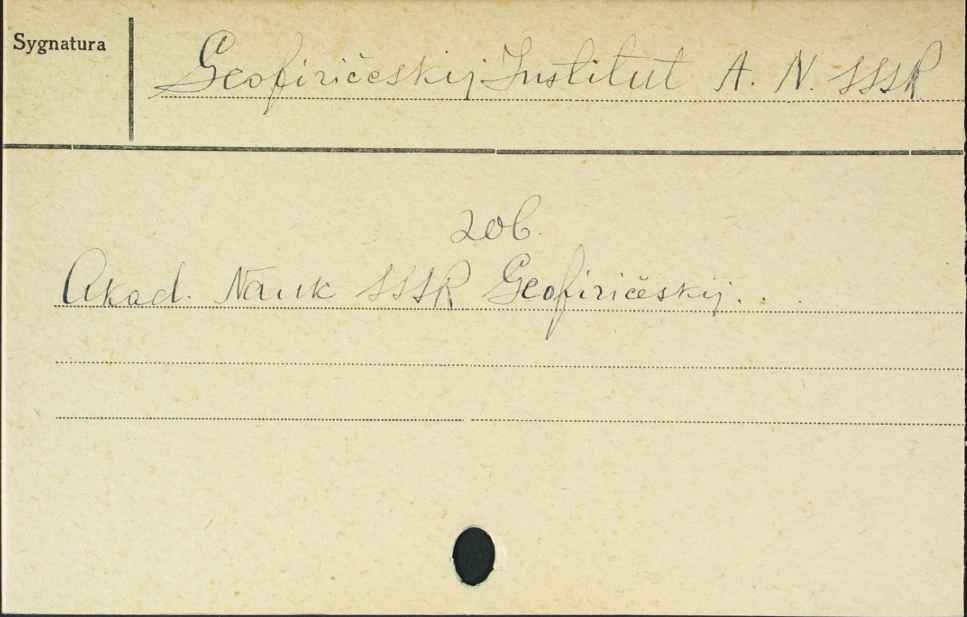 Sygnatura
Geofizičeskij Institut A. N. SSSR
zob.
Akad. Nauk SSSR Geofizičeskij. . .